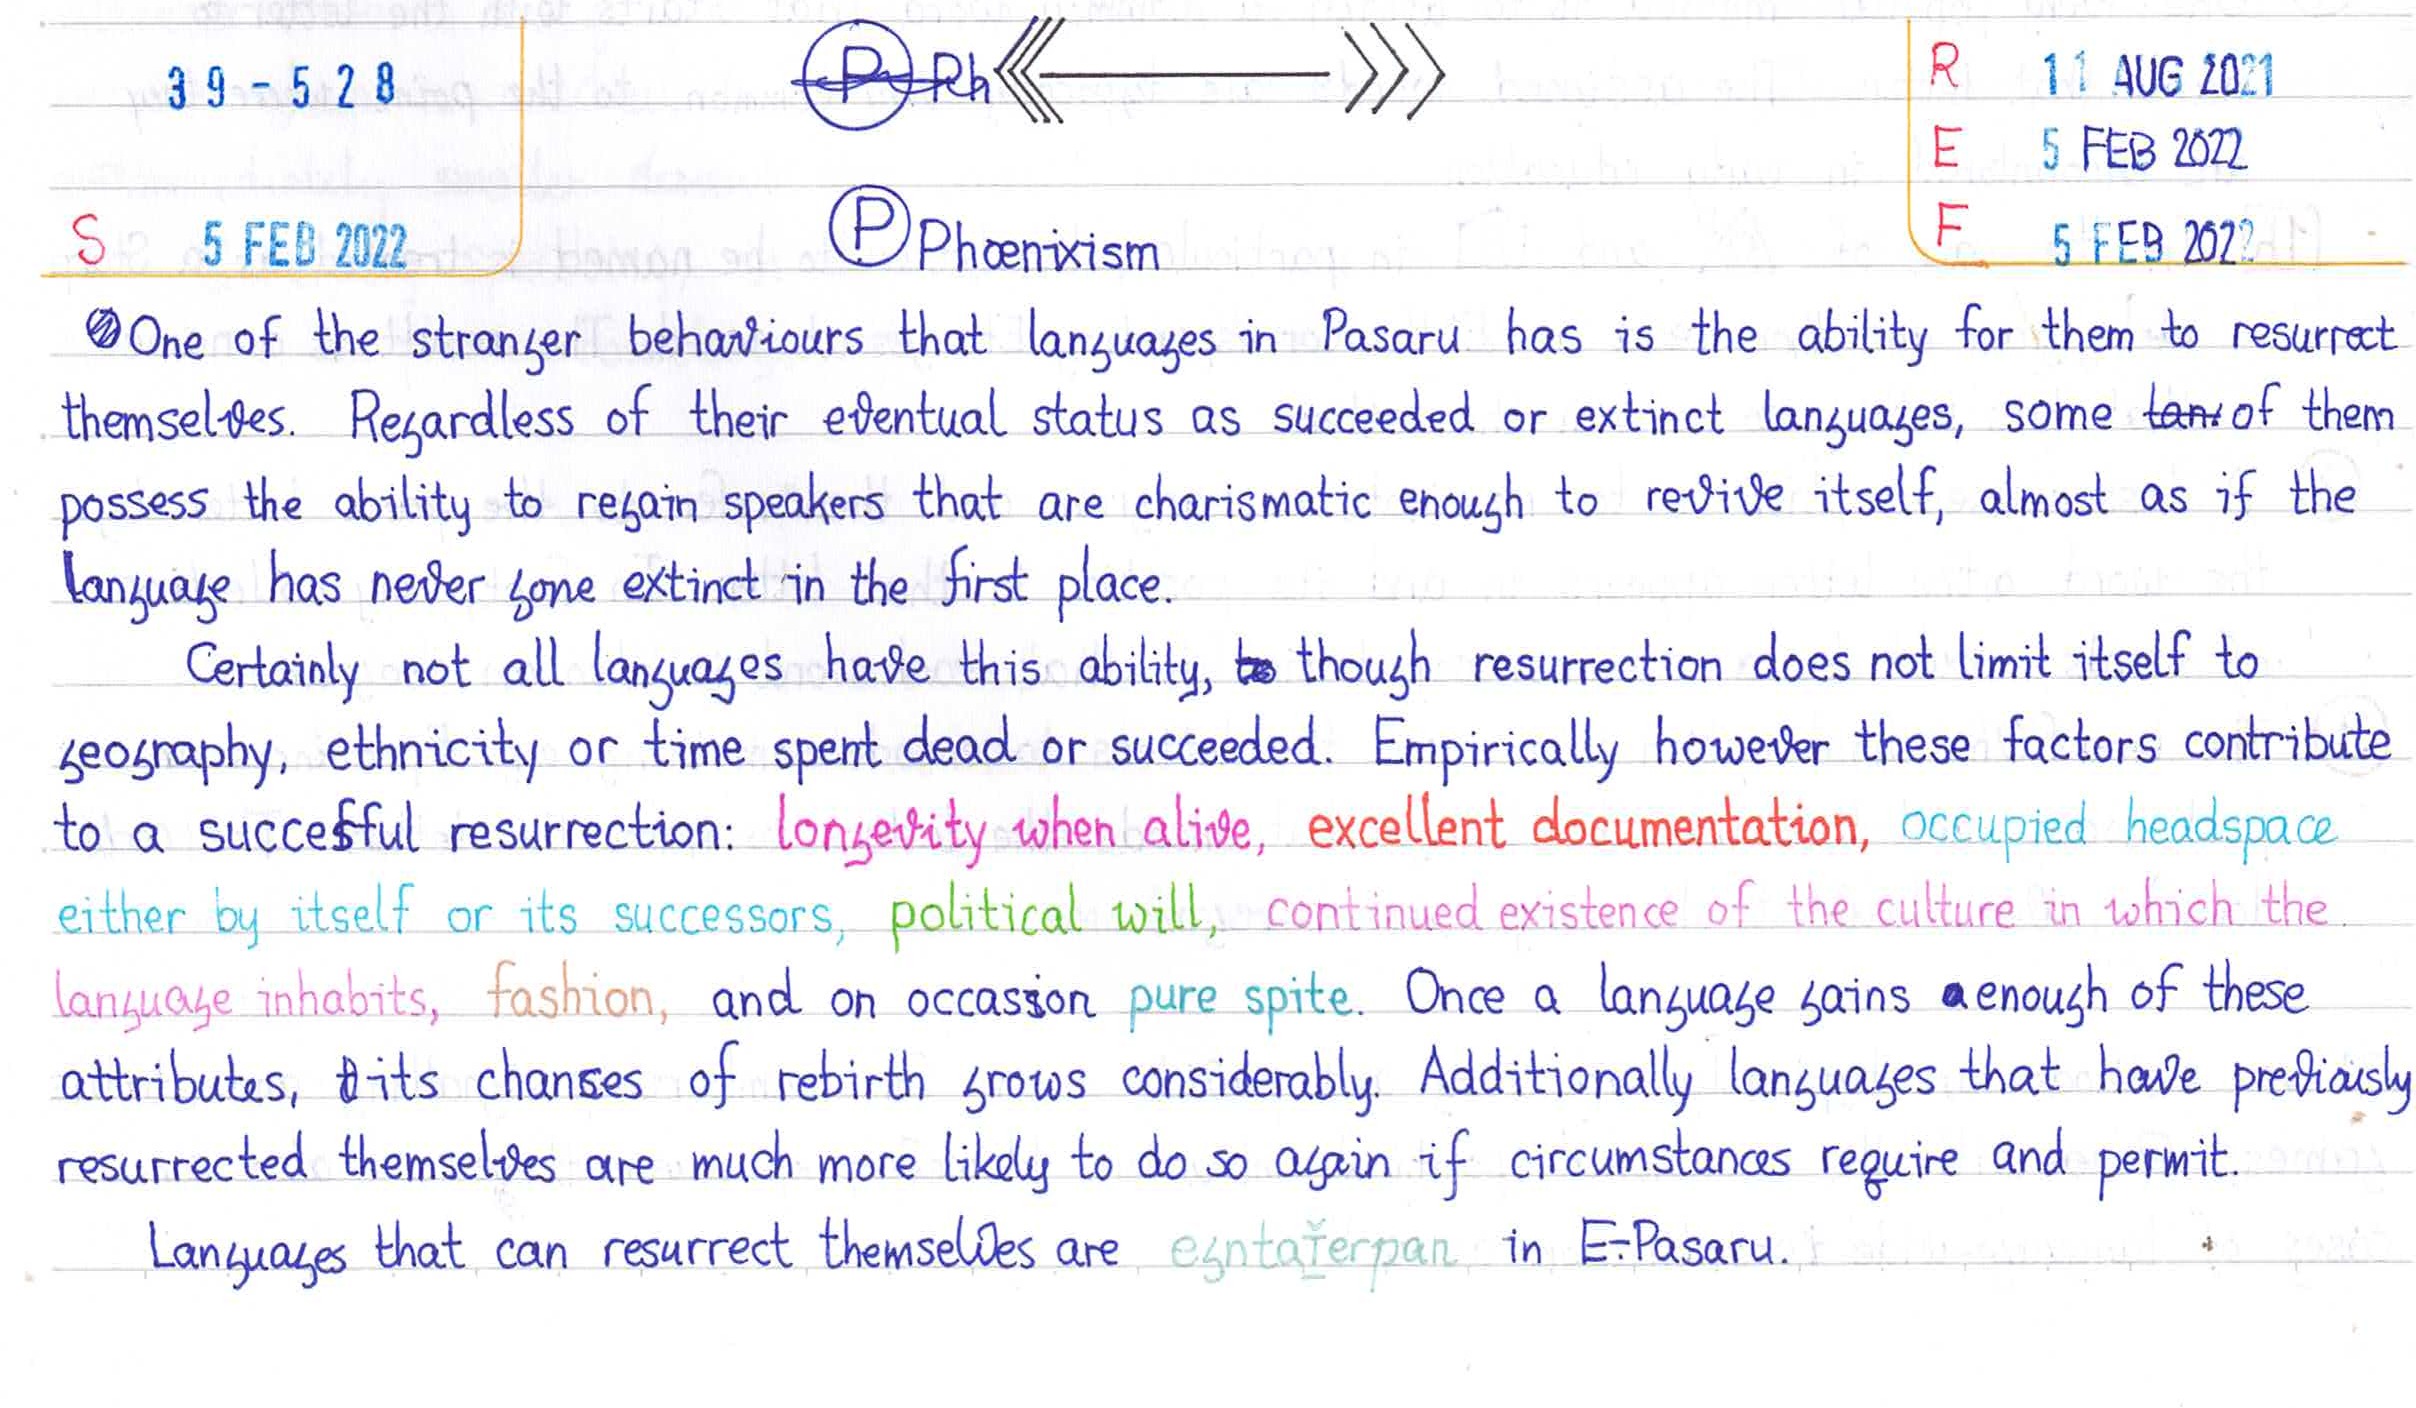 39-528
P Ph
R 11 AUG 2021
E 5 FEB 2022
S 5 FEB 2022
P Phœnixism
F 5 FEB 2022
One of the stranger behaviours that languages in Pasaru has is the ability for them to resurrect
themselves. Regardless of their eventual status as succeeded or extinct languages, some lan of them
possess the ability to regain speakers that are charismatic enough to revive itself, almost as if the
language has never gone extinct in the first place.
Certainly not all languages have this ability, to though resurrection does not limit itself to
geography, ethnicity or time spent dead or succeeded. Empirically however these factors contribute
to a succeſsful resurrection: longevity when alive, excellent documentation, occupied headspace
either by itself or its successors, political will, continued existence of the culture in which the
language inhabits, fashion, and on occasion pure spite. Once a language gains enough of these
attributes, its chances of rebirth grows considerably. Additionally languages that have previously
resurrected themselves are much more likely to do so again if circumstances require and permit.
Languages that can resurrect themselves are in E-Pasaru.